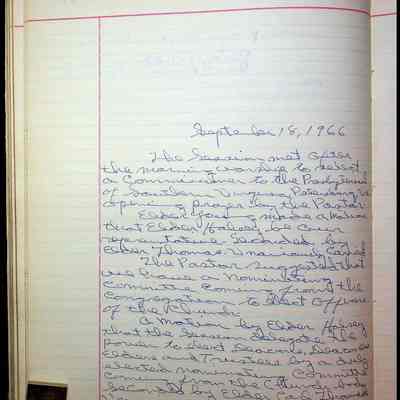 September 18, 1966
The Session met after
the morning worship to select
a Commissioner to the Presbyterial
of Southern Virginia
opening prayer by the Pastor
Elder Young made a motion
that Elder Halsey be our
representative Seconded by
Elder Thomas. Unanimously Carried
The Pastor suggested that
we have a Nominating
Committee Coming from the
Congregation to elect Officers
of the Church
A motion by Elder Halsey
that the Session delegate the
power to elect Deacons, Deaconess
Elders and Trustees by a duly
elected nominating Committee
Coming from the Church body
Seconded by Elder Thomas